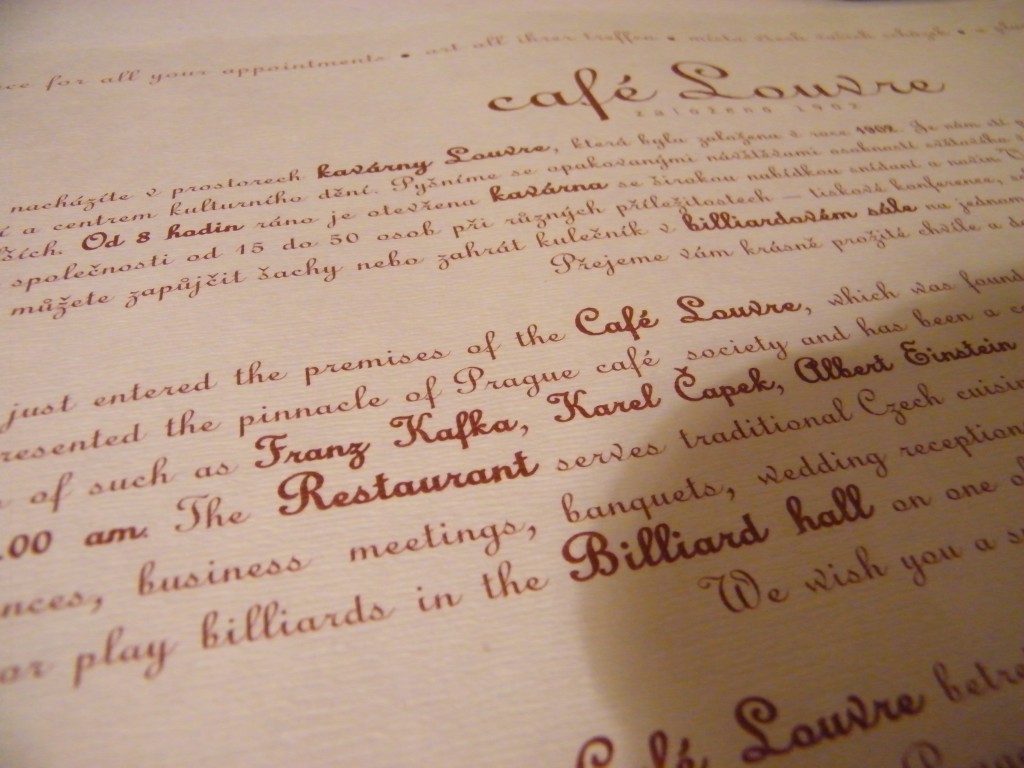 for all your appointments • ort all ihrer treffen • místo všech vašich schůzek •
café Louvre
založeno 1902
nacházíte v prostorech kavárny Louvre, která byla založena v roce 1902. Je nám ctí
a centrem kulturního dění. Pyšníme se opakovanými návštěvami osobností světového
Od 8 hodin ráno je otevřena kavárna se širokou nabídkou snídaní a naším
společnosti od 15 do 50 osob při různých příležitostech — tiskové konference,
můžete zapůjčit šachy nebo zahrát kulečník v billiardovém sále na jednom
Přejeme vám krásně prožité chvíle a
just entered the premises of the Café Louvre, which was found
resented the pinnacle of Prague café society and has been a
of such as Franz Kafka, Karel Čapek, Albert Einstein
.00 am. The Restaurant serves traditional Czech cuisin
nces, business meetings, banquets, wedding reception
or play billiards in the Billiard hall on one o
We wish you a
Café Louvre betre